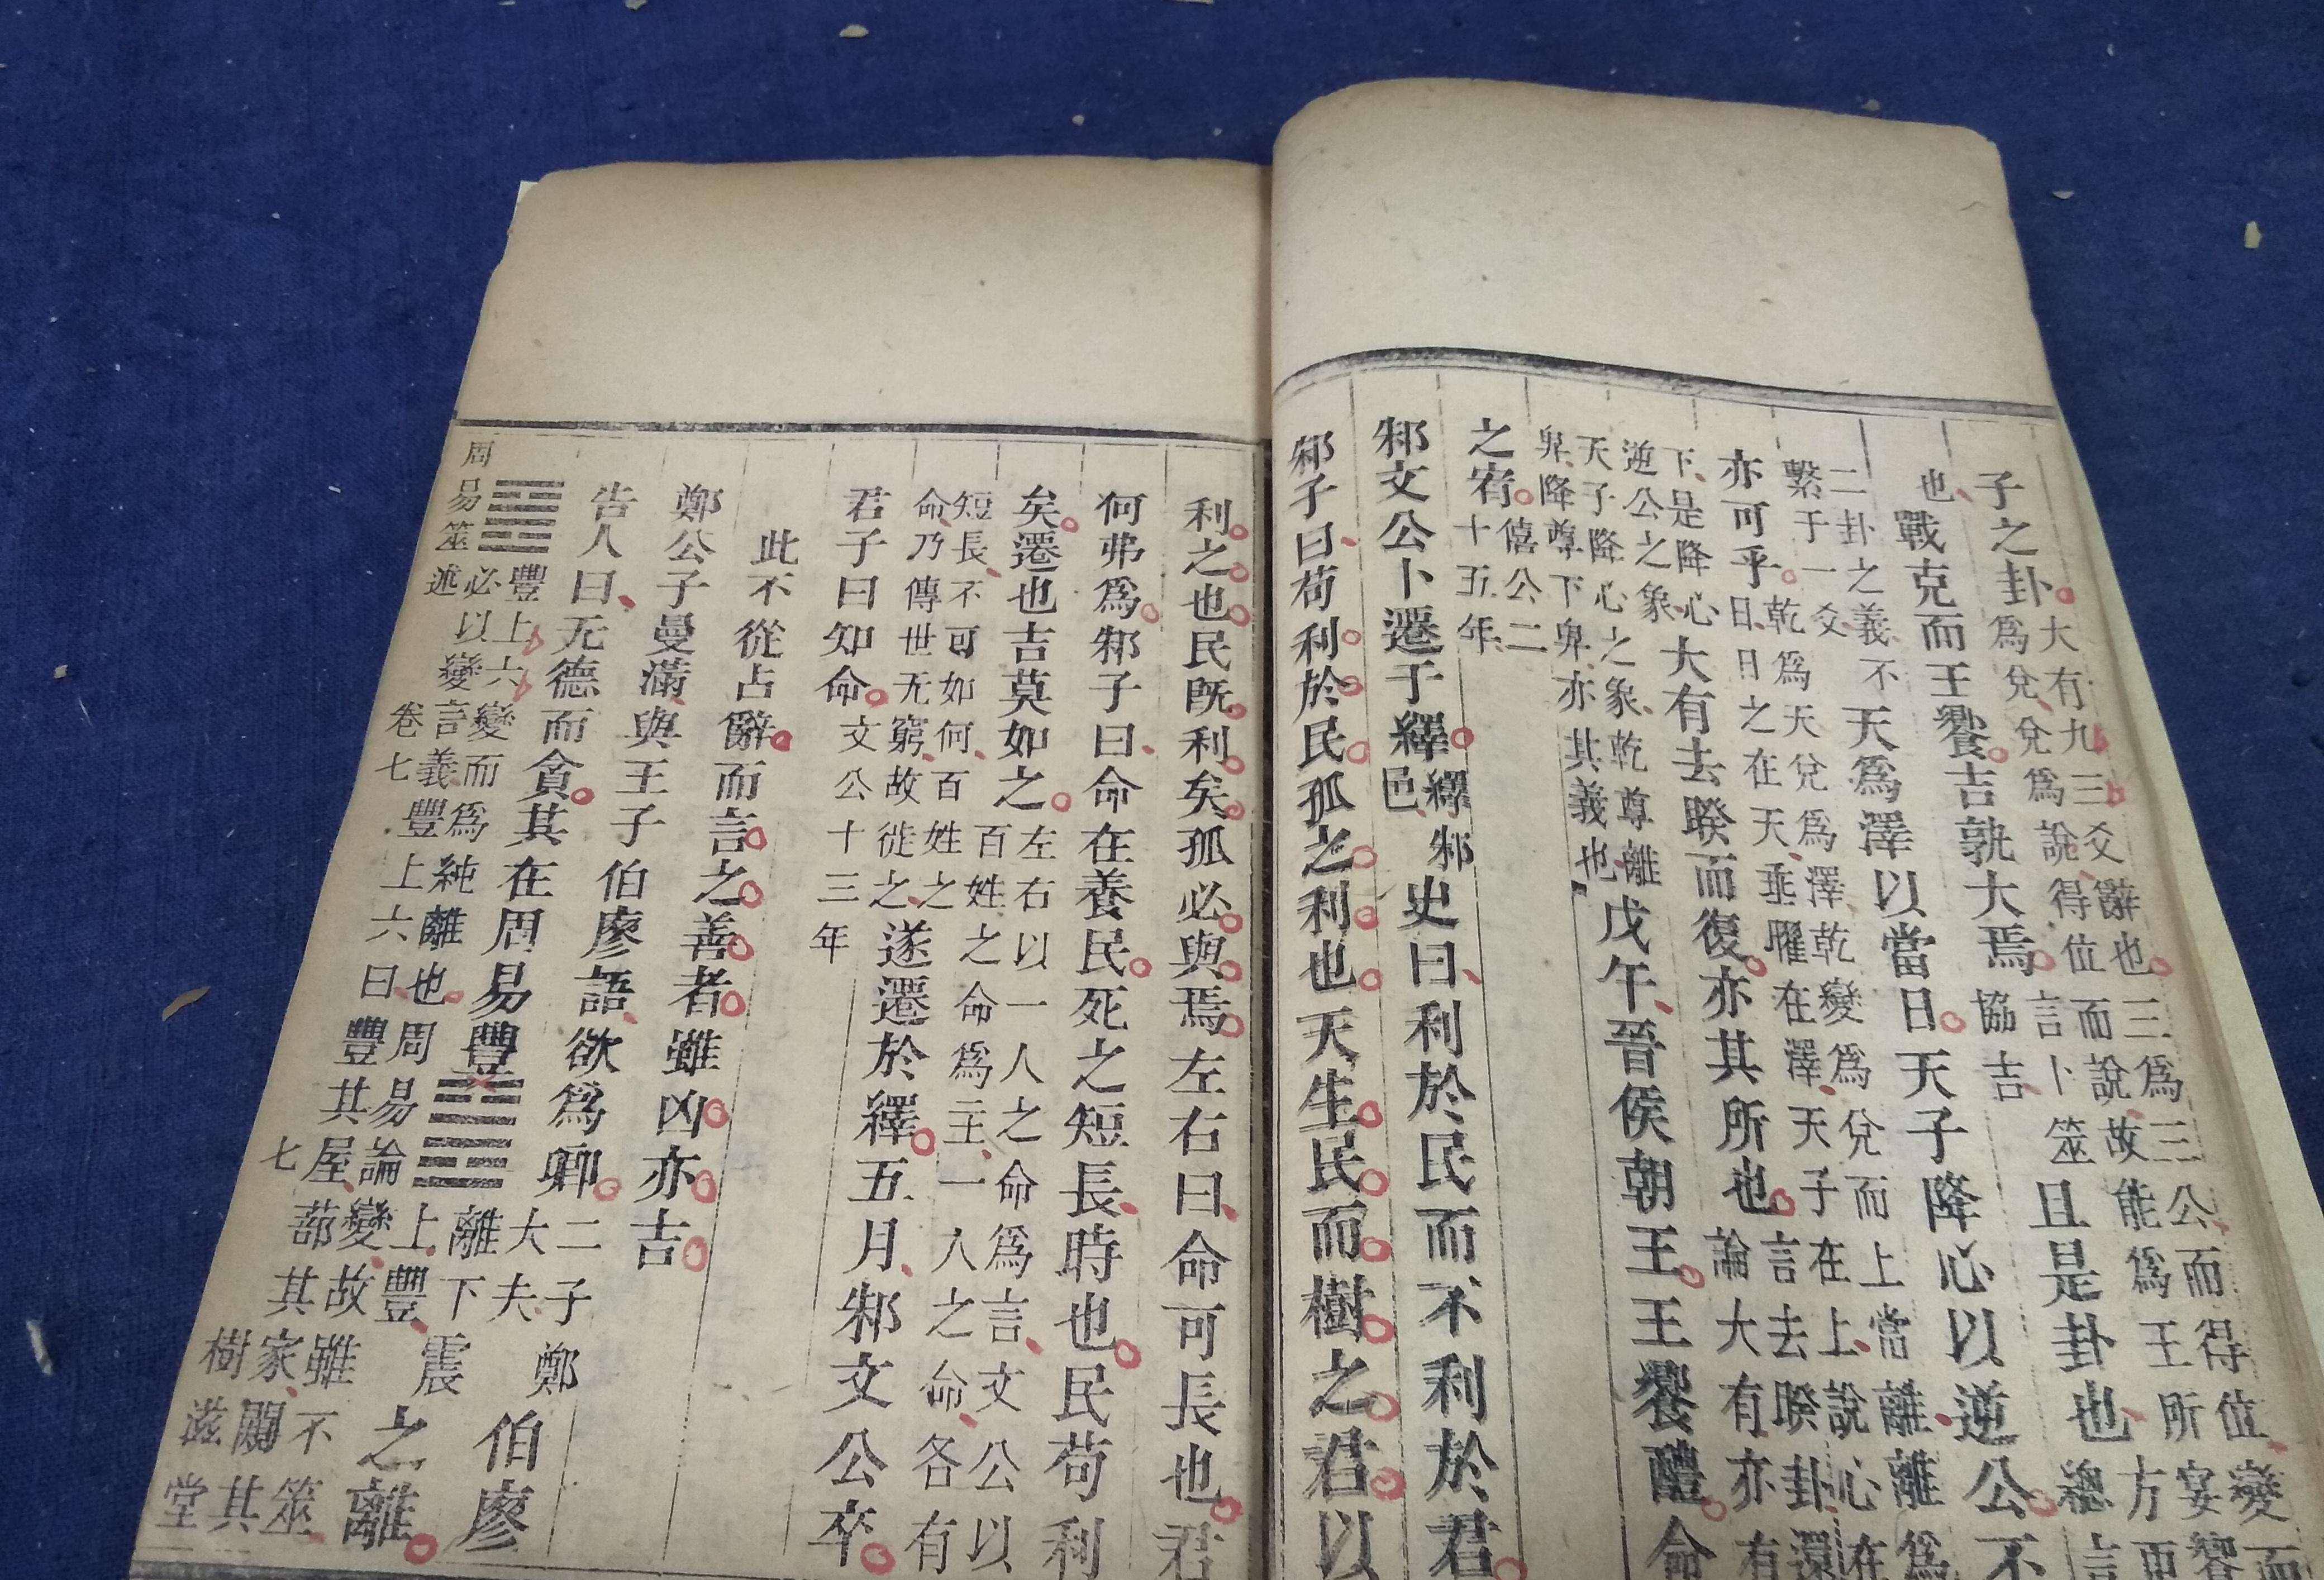 子之卦大有九三爻辭也三爲三公而得位變而
爲兌兌爲說得位而說故能爲王所宴饗
也戰克而王饗吉孰大焉言卜筮協吉且是卦也方更總言
二卦之義不繫于一爻天爲澤以當日天子降心以逆公不
亦可乎乾爲天兌爲澤乾變爲兌而上當離離爲
日日之在天垂曜在澤天子在上說心在
下是降心逆公之象大有去睽而復亦其所也言去睽卦還論大有亦有
天子降心之象乾尊離卑降尊下卑亦其義也戊午晉侯朝王王饗醴命
之宥僖公二十五年
邾文公卜遷于繹繹邾邑史曰利於民而不利於君
邾子曰苟利於民孤之利也天生民而樹之君以
利之也民既利矣孤必與焉左右曰命可長也君
何弗爲邾子曰命在養民死之短長時也民苟利
矣遷也吉莫如之左右以一人之命爲言文公以百姓之命爲主一人之命各有
短長不可如何百姓之命乃傳世无窮故徙之遂遷於繹五月邾文公卒
君子曰知命文公十三年
此不從占辭而言之善者雖凶亦吉
鄭公子曼滿與王子伯廖語欲爲卿二子鄭大夫伯廖
告人曰无德而貪其在周易豐䷶離下震上豐之離
䷝豐上六變而爲純離也周易論變故雖不筮
必以變言義豐上六曰豐其屋蔀其家闚其
周易筮述 卷七 七 樹滋堂